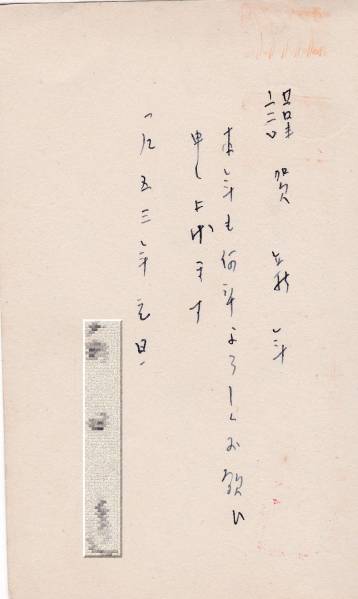 謹賀新年
本年も何卒よろしくお願い
申し上げます
一九五三年元旦